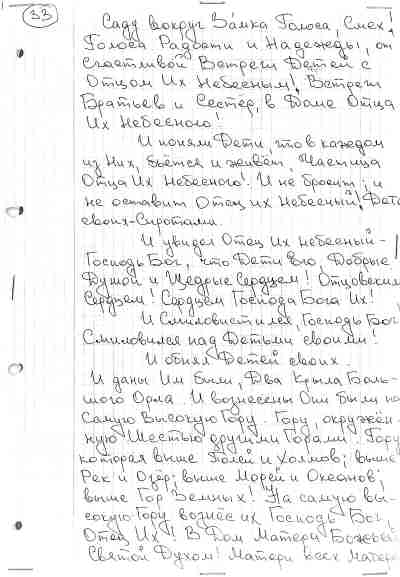 33
Саду вокруг За́мка Голоса, Смех!
Голоса Радости и Надежды, от
Счастливой Встречи Детей с
Отцом Их Небесным! Встречи
Братьев и Сестёр, в Доме Отца
Их Небесного!
И поняли Дети, что в каждом
из Них, бьётся и живёт, Частица
Отца Их Небесного! И не бросит, и
не оставит Отец их Небесный! Дете
своих-Сиротами.
И увидел Отец Их Небесный-
Господь Бог, что Дети Его, Добрые
Душой и Щедрые Сердцем! Отцовским
Сердцем! Сердцем Господа Бога Их!
И Смиловистился, Господь Бог!
Смиловился над Детьми своими!
И обнял Детей своих.
И даны Им были, Два Крыла Боль-
шого Орла. И вознесены Они были на
Самую Высокую Гору. Гору, окружён-
ную Шестью другими Горами. Гору
которая выше Полей и Холмов; выше
Рек и Озёр; выше Морей и Океанов;
выше Гор Земных! На самую вы-
сокую Гору вознёс их Господь Бог,
Отец Их! В Дом Матери Божьей
Святой Духом! Матери всех Матере